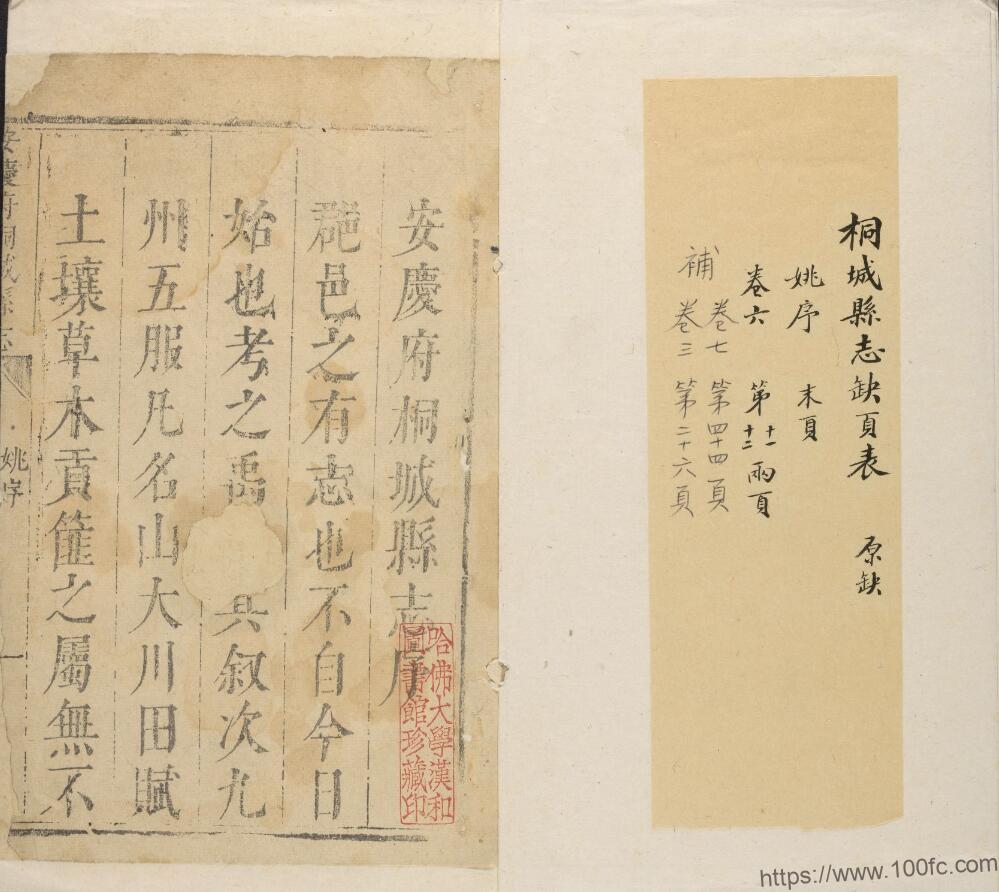 桐城縣志缺頁表 原缺
姚序 末頁
卷六 第十一十二兩頁
補 卷七 第四十四頁
卷三 第二十六頁
安慶府桐城縣志序
郡邑之有志也不自今日
始也考之禹其叙次九
州五服凡名山大川田賦
土壤草木貢篚之屬無不
安慶府桐城縣志 姚序 一
哈佛大學漢和
圖書館珍藏印
https://www.100fc.com